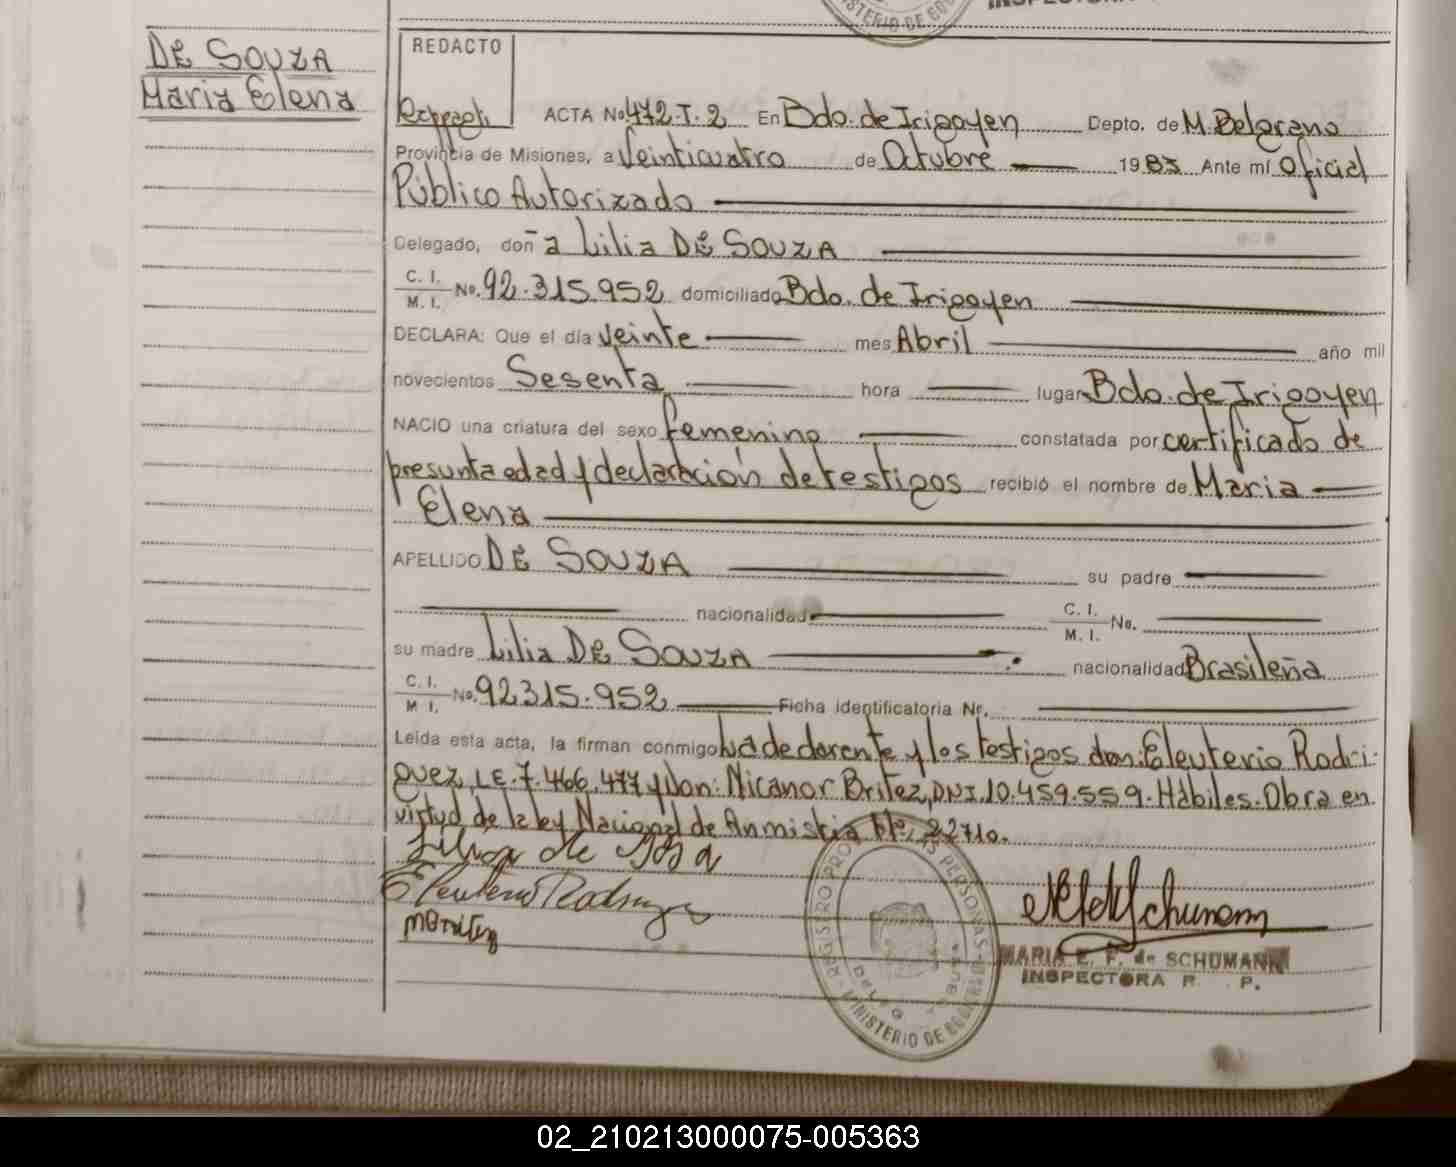 DE SOUZA
Maria Elena
REDACTO
ACTA No. 472-T-2 En Bdo. de Irigoyen Depto. de M. Belgrano
Provincia de Misiones, a Veinticuatro de Octubre 1983 Ante mí Oficial
Público Autorizado
Delegado, doña Lilia DE SOUZA
C. I.
M. I. No. 92.315.952 domiciliada Bdo. de Irigoyen
DECLARA: Que el día Veinte mes Abril año mil
novecientos Sesenta hora lugar Bdo. de Irigoyen
NACIO una criatura del sexo femenino constatada por certificado de
presunta edad y declaración de testigos recibió el nombre de Maria
Elena
APELLIDO DE SOUZA su padre
nacionalidad C. I.
M. I. No.
su madre Lilia DE SOUZA nacionalidad Brasileña
C. I.
M I. No. 92315.952 Ficha identificatoria Nr.
Leída esta acta, la firman conmigo la declarente y los testigos don: Eleuterio Rodri-
guez, L.E. 7.466.477 y Don: Nicanor Britez, DNI. 10.459.559. Hábiles. Obra en
virtud de la ley Nacional de Anmistia Nº 22710.
Eleuterio Rodriguez
REGISTRO PERSONAS
MINISTERIO DE GO
MARIA E. F. de SCHUMANN
INSPECTORA R. P.
02_210213000075-005363